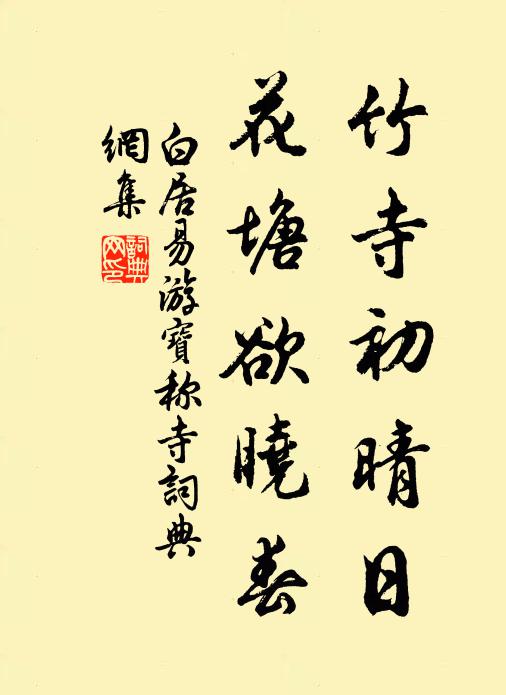 竹寺初晴日
花塘欲曉春
白居易游寶称寺詞典
網集
詞典網印